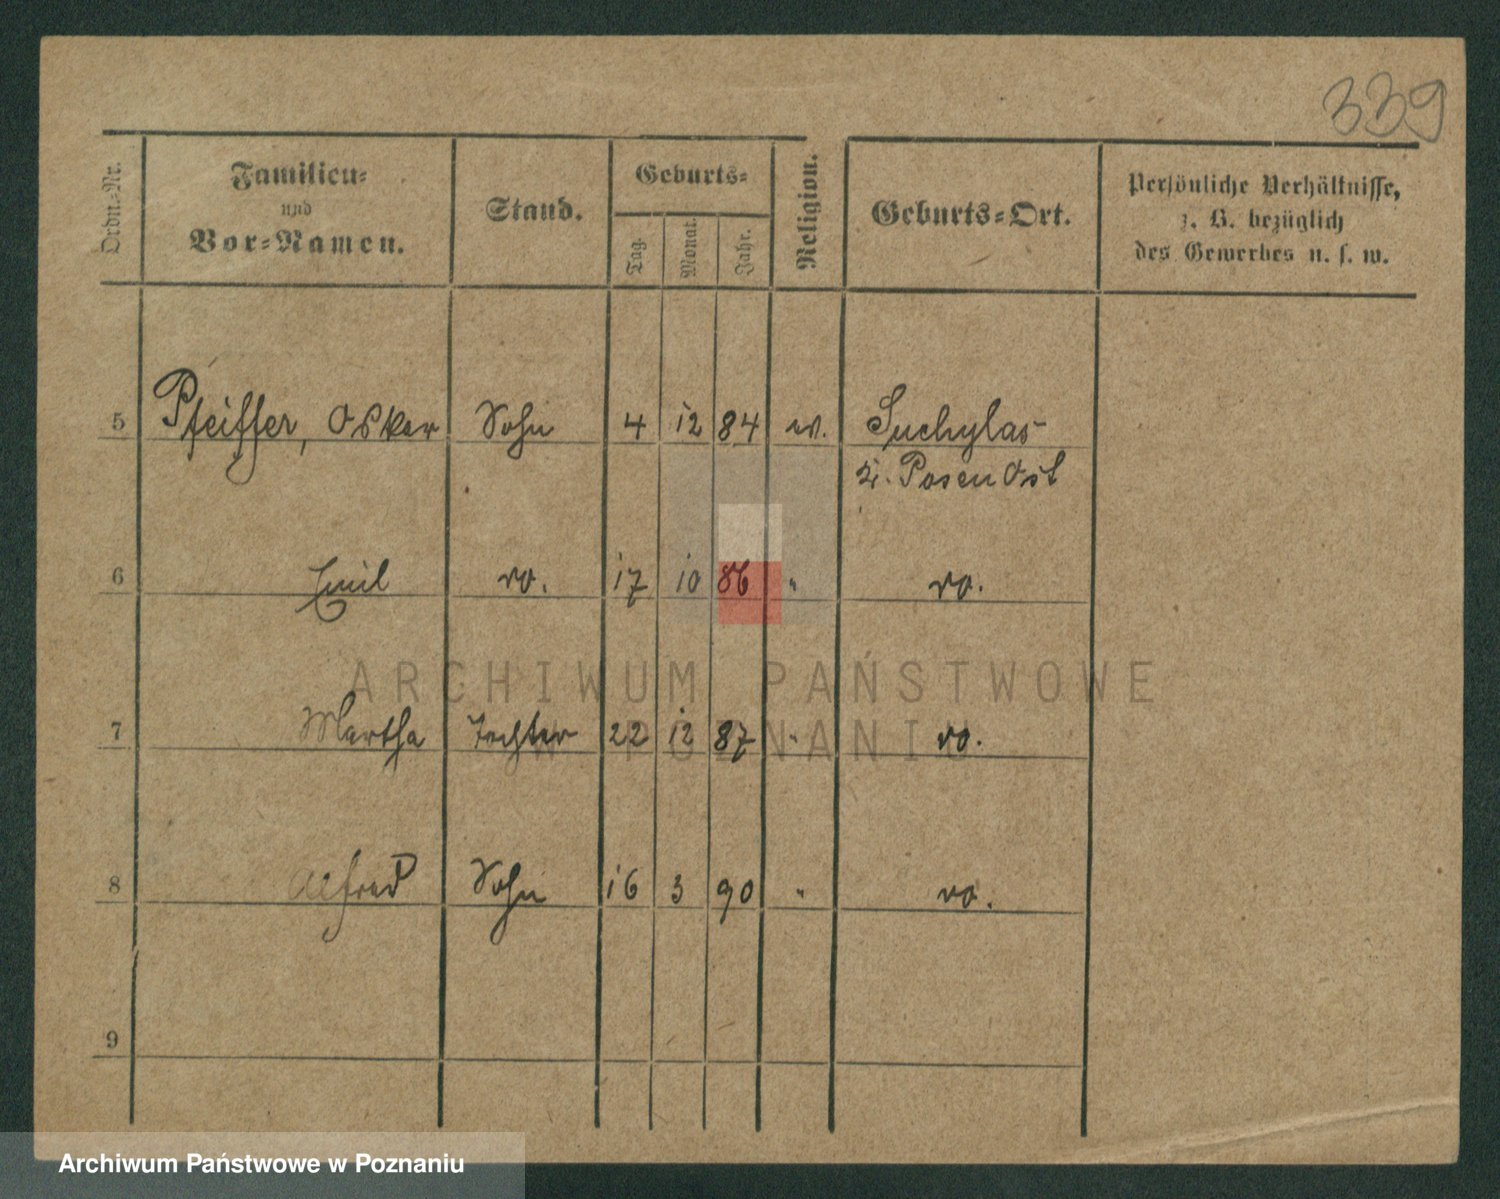 339
Ordn.-Nr.
Familien-
und
Vor-Namen.
Stand.
Geburts-
Tag.
Monat.
Jahr.
Religion.
Geburts-Ort.
Persönliche Verhältnisse,
z. B. bezüglich
des Gewerbes u. s. w.
5 Pfeiffer, Oskar Sohn 4 12 84 ev. Suchylas
Kr. Posen Ost
6 Emil do. 17 10 86 " do.
7 Martha Tochter 22 12 87 " do.
8 Alfred Sohn 16 3 90 " do.
9
ARCHIWUM PAŃSTWOWE
W POZNANIU
Archiwum Państwowe w Poznaniu